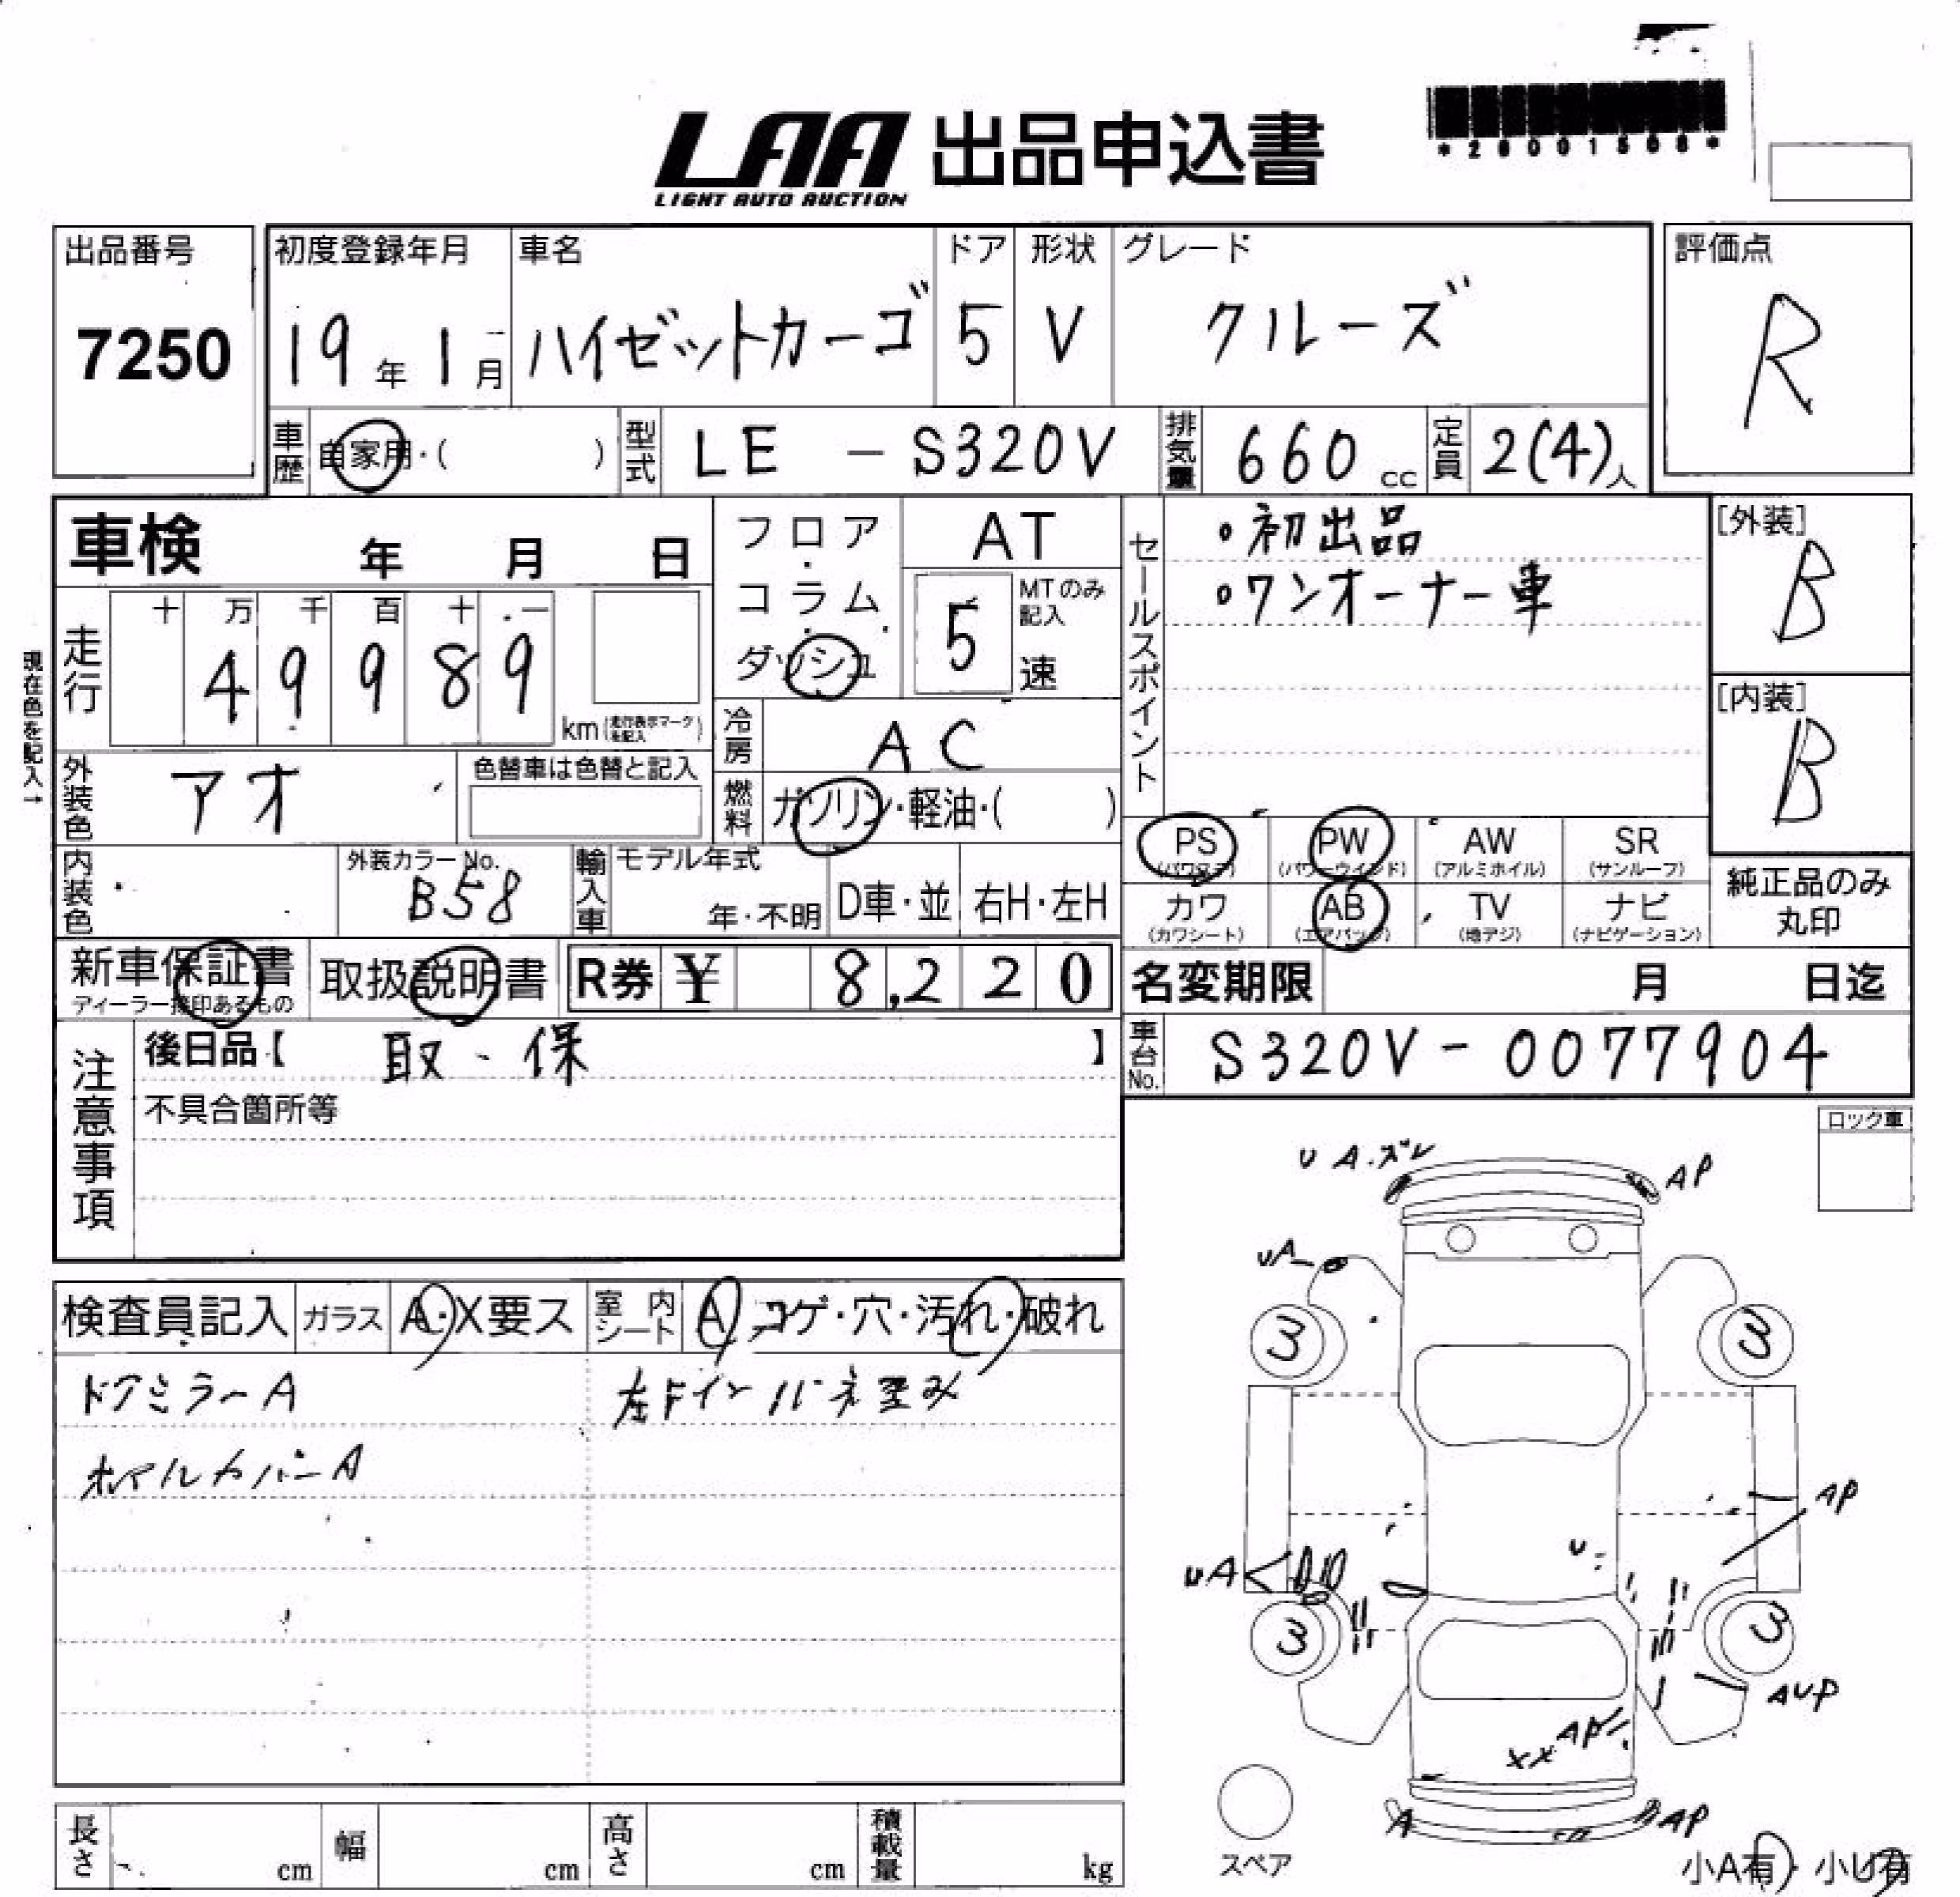 LAA 出品申込書
LIGHT AUTO AUCTION
出品番号
7250
初度登録年月
19年1月
車名
ハイゼットカーゴ
ドア
5
形状
V
グレード
クルーズ
評価点
R
車歴
自家用・( )
型式
LE - S320V
排気量
660cc
定員
2(4)人
車検 年 月 日
フロア・コラム・ダッシュ
AT
MTのみ記入
5速
セールスポイント
・初出品
・ワンオーナー車
[外装]
B
[内装]
B
現在色を記入→
走行
十 万 千 百 十 一
4 9 9 8 9
km(走行表示マークを記入)
冷房
AC
外装色
アオ
色替車は色替と記入
燃料
ガソリン・軽油・( )
内装色
外装カラーNo.
B58
輸入車
モデル年式
年・不明
D車・並
右H・左H
PS (パワステ)
PW (パワーウインド)
AW (アルミホイル)
SR (サンルーフ)
カワ (カワシート)
AB (エアバッグ)
TV (地デジ)
ナビ (ナビゲーション)
純正品のみ丸印
新車保証書
ディーラー捺印あるもの
取扱説明書
R券 ¥ 8,220
名変期限 月 日迄
注意事項
後日品【 取・保 】
不具合箇所等
車台No.
S320V-0077904
ロック車
検査員記入
ガラス
A・X要ス
室内シート
A コゲ・穴・汚れ・破れ
ドアミラーA
左Fインパネ歪み
ホイルカバーA
UA・ズレ
AP
UA
3
3
AP
UA
U
3
3
AUP
AP
XX
A
AP
スペア
小A有・小U有
長さ cm
幅 cm
高さ cm
積載量 kg